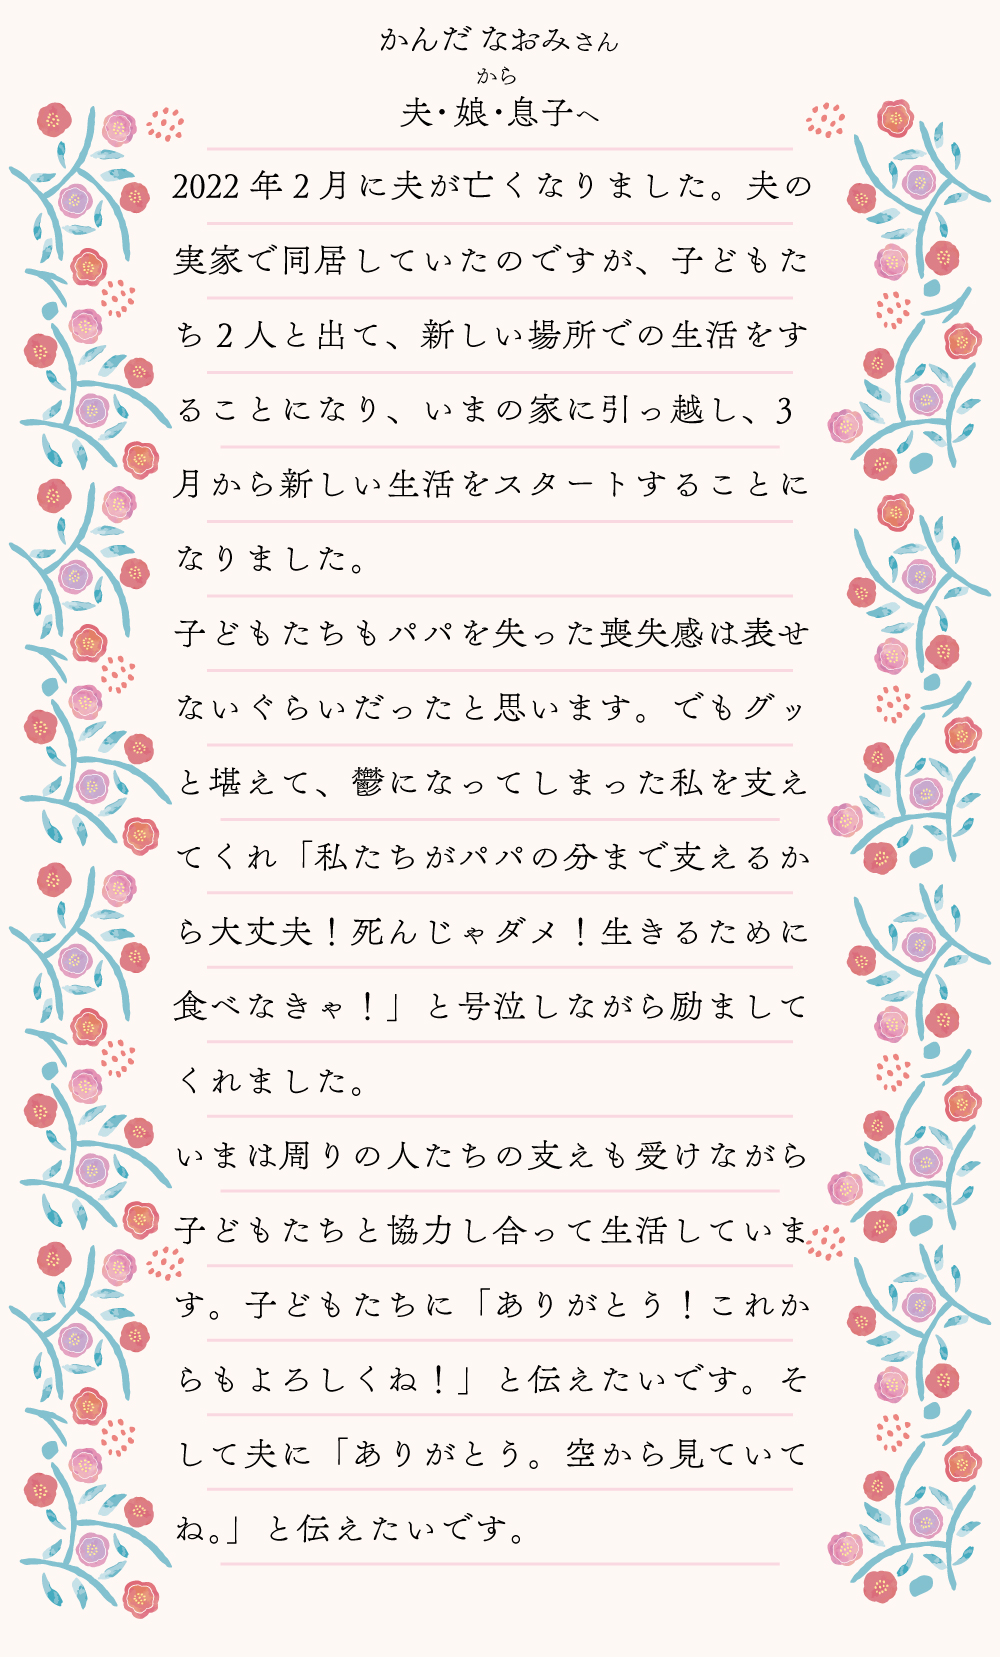 かんだ なおみさん
から
夫・娘・息子へ
2022 年 2 月に夫が亡くなりました。夫の
実家で同居していたのですが、子どもた
ち 2 人と出て、新しい場所での生活をす
ることになり、いまの家に引っ越し、3
月から新しい生活をスタートすることに
なりました。
子どもたちもパパを失った喪失感は表せ
ないぐらいだったと思います。でもグッ
と堪えて、鬱になってしまった私を支え
てくれ「私たちがパパの分まで支えるか
ら大丈夫！死んじゃダメ！生きるために
食べなきゃ！」と号泣しながら励まして
くれました。
いまは周りの人たちの支えも受けながら
子どもたちと協力し合って生活していま
す。子どもたちに「ありがとう！これか
らもよろしくね！」と伝えたいです。そ
して夫に「ありがとう。空から見ていて
ね。」と伝えたいです。